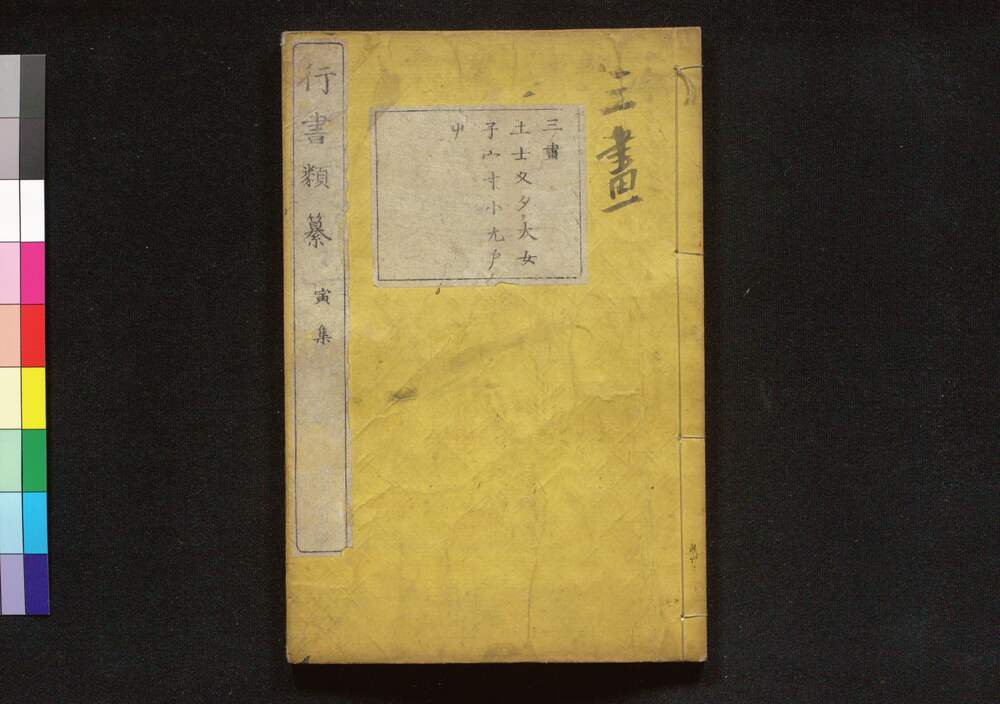 三畫
三畫
土士夂夕大女
子宀寸小尢尸
屮
行書類纂 寅集